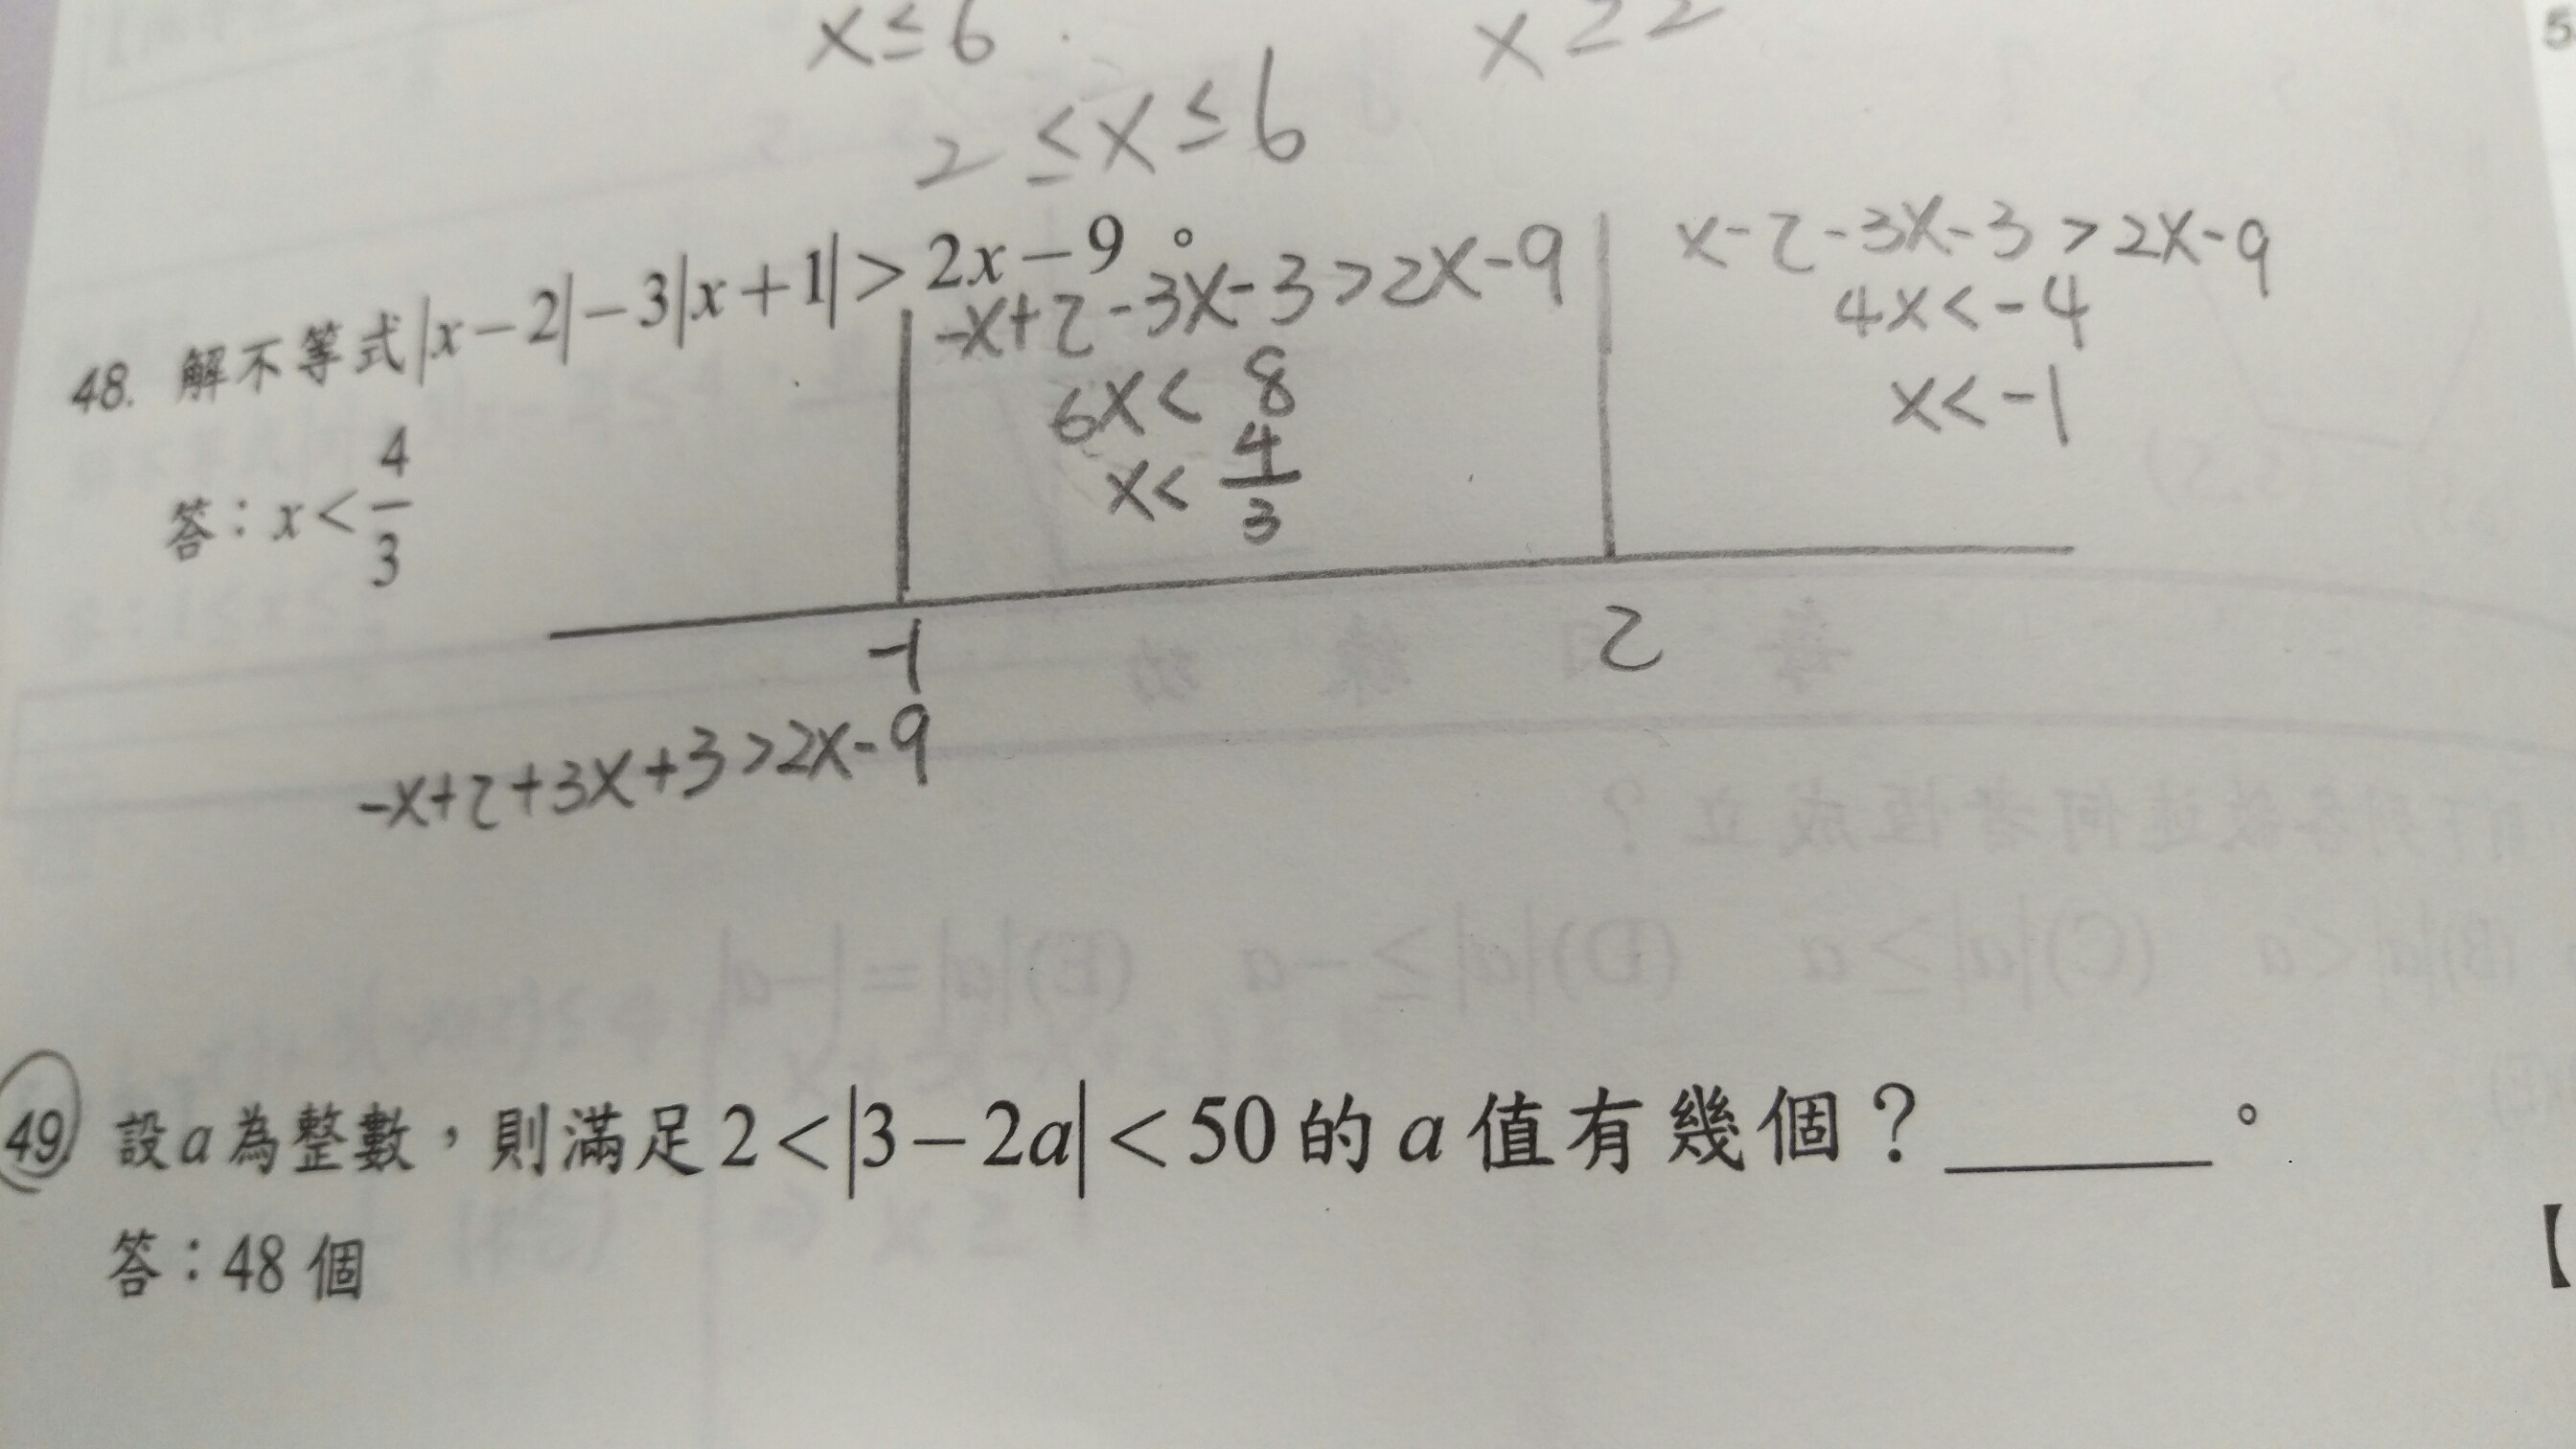 x≤6
x≥2
2≤x≤6
48. 解不等式|x−2|−3|x+1|>2x−9。
答：x<4/3
-x+2-3x-3>2x-9
6x<8
x<4/3
x-2-3x-3>2x-9
4x<-4
x<-1
-1
2
-x+2+3x+3>2x-9
49. 設a為整數，則滿足2<|3−2a|<50的a值有幾個？______。
答：48個
【
5